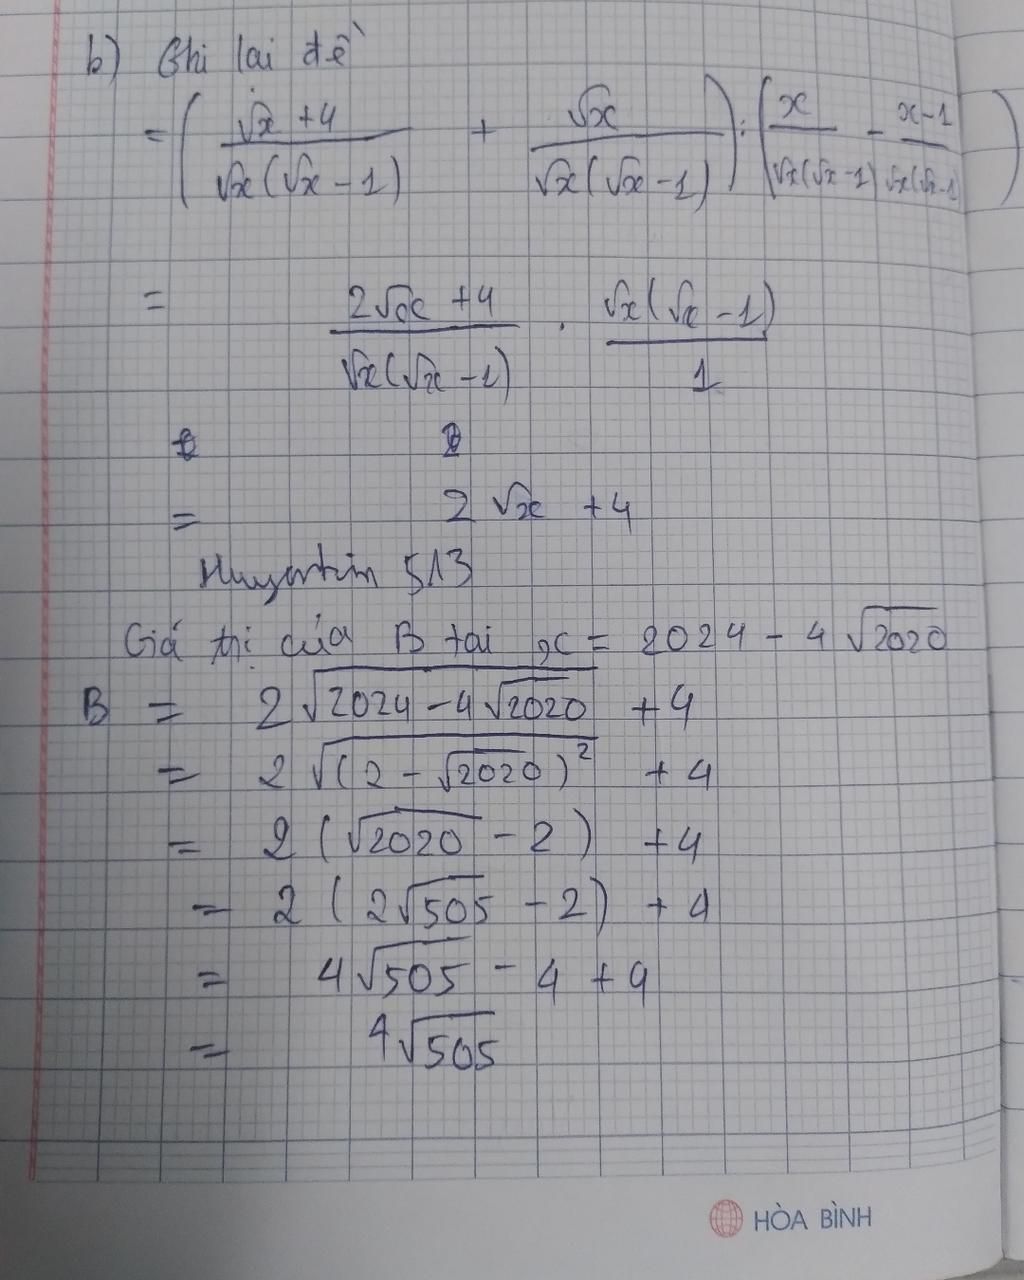 b) Ghi lại đề
= ( (√x + 4) / (√x(√x - 1)) + √x / (√x(√x - 1)) ) : ( x / (√x(√x - 1)) - (x - 1) / (√x(√x - 1)) )
= (2√x + 4) / (√x(√x - 1)) . (√x(√x - 1)) / 1
= 2√x + 4
Huyentim 513
Giá trị của B tại x = 2024 - 4√2020
B = 2√(2024 - 4√2020) + 4
= 2√((2 - √2020)²) + 4
= 2(√2020 - 2) + 4
= 2(2√505 - 2) + 4
= 4√505 - 4 + 4
= 4√505
HÒA BÌNH